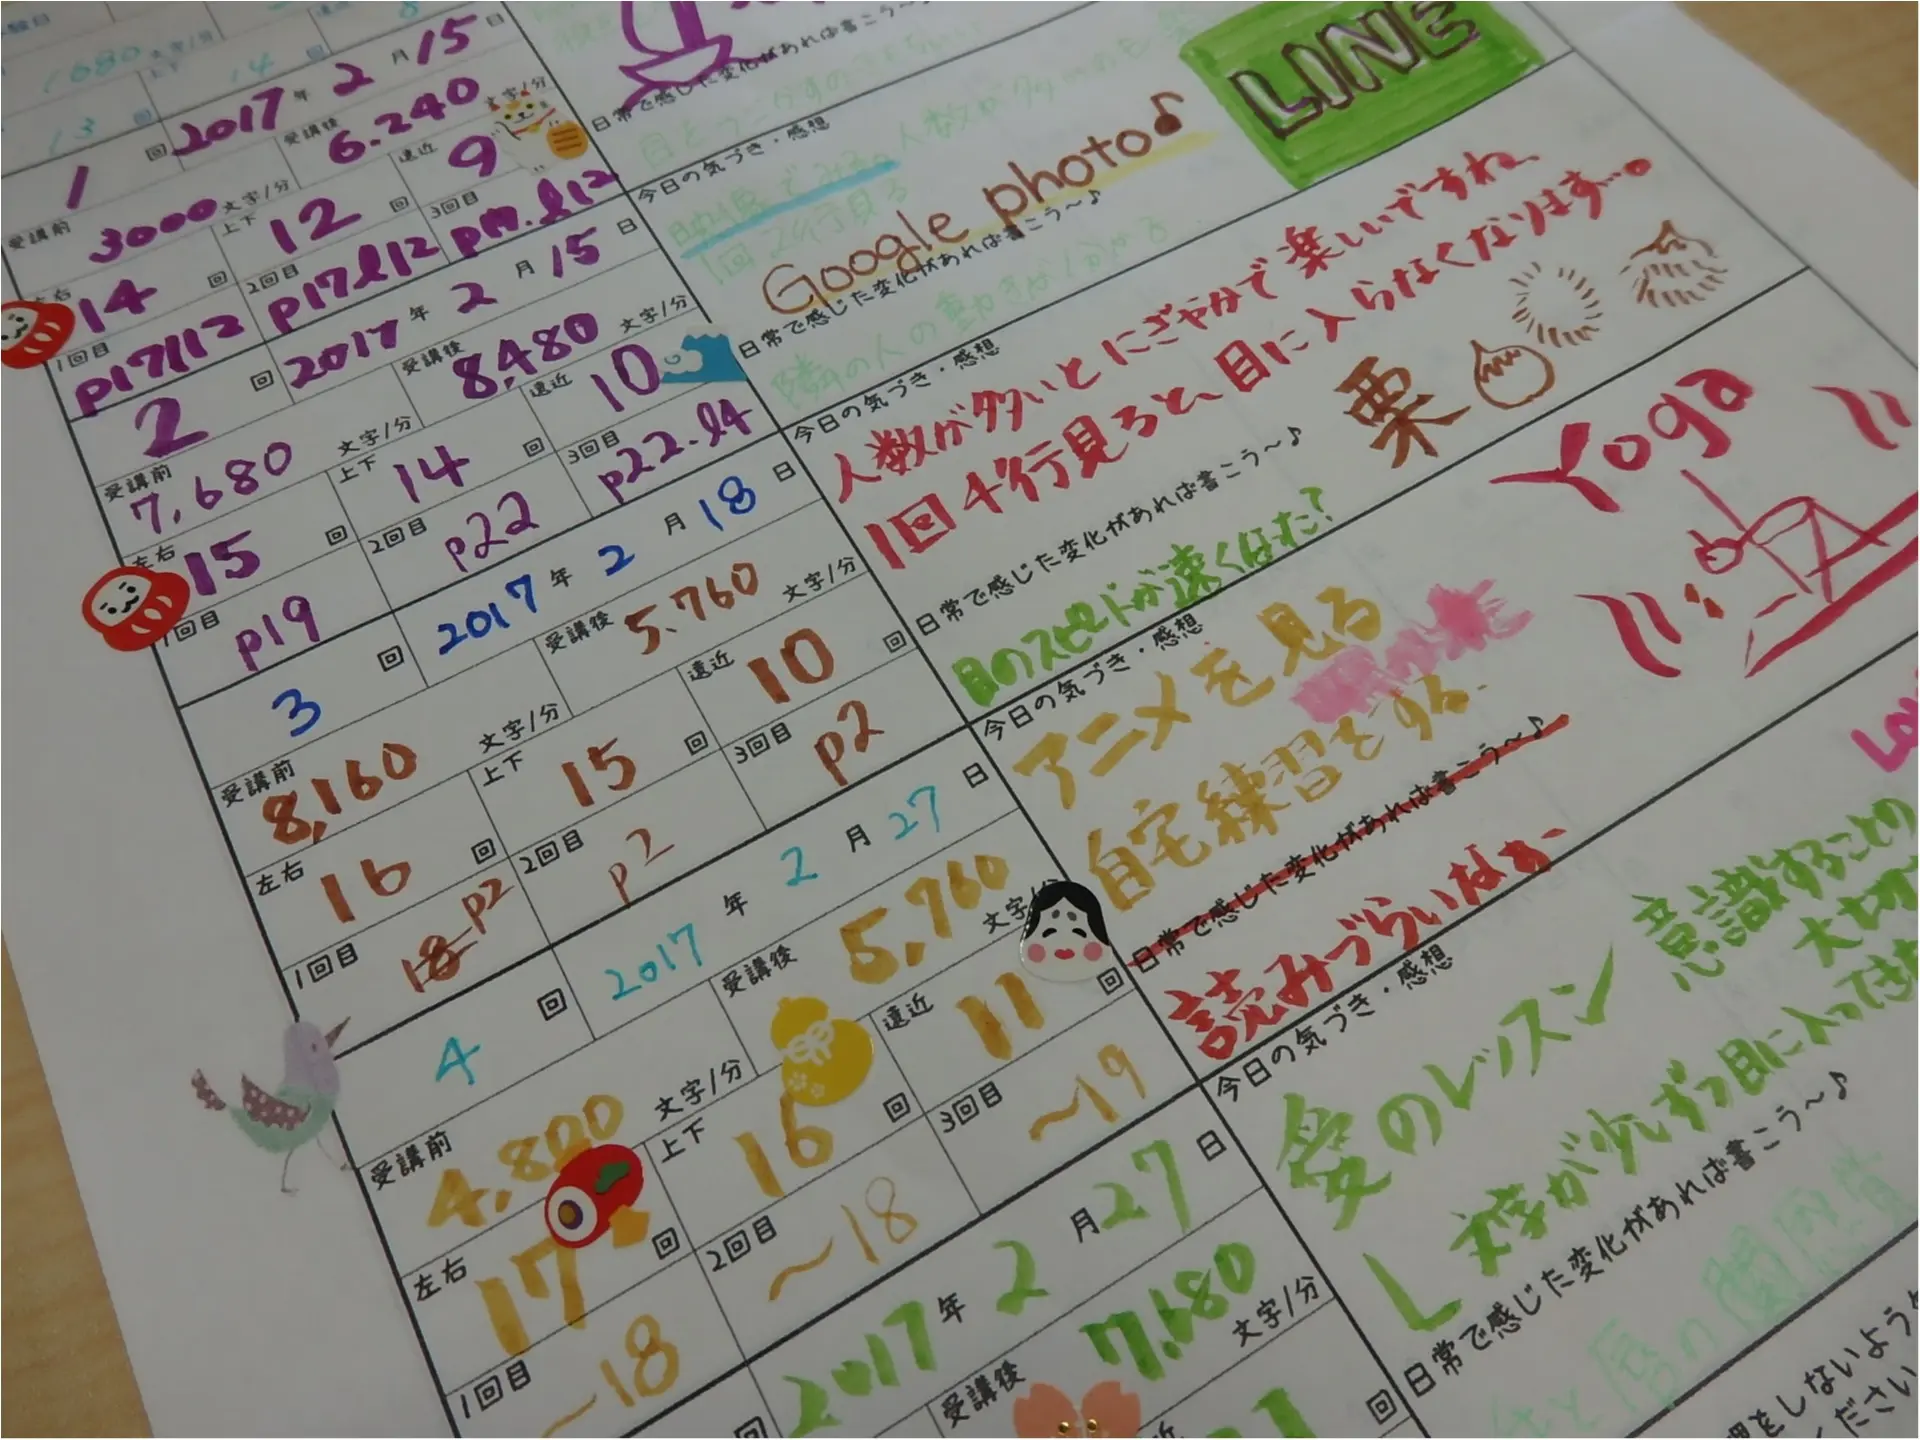 1080 文字/分
上下 14 回
13 回
1 回 2017 年 2 月 15 日
受講前 3000 文字/分
受講後 6.240 文字/分
左右 14 回
上下 12 回
遠近 9
1回目 p17l12
2回目 p17l12
3回目
2 回 2017 年 2 月 15 日
受講前 7,680 文字/分
受講後 8,480 文字/分
左右 15 回
上下 14 回
遠近 10
1回目 p19
2回目 p22
3回目 p22.l4
3 回 2017 年 2 月 18 日
受講前 8,160 文字/分
受講後 5.760 文字/分
左右 16 回
上下 15 回
遠近 10 回
1回目 p2
2回目 p2
3回目 p2
4 回 2017 年 2 月 27 日
受講前 4,800 文字/分
受講後 5,760 文字/分
左右 17 回
上下 16 回
遠近 11 回
1回目 ~18
2回目 ~18
3回目 ~19
回 2017 年 2 月 27 日
受講後 7,680 文字/分
回
日常で感じた変化があれば書こう～♪
LINE
今日の気づき・感想
Google photo♪
日常で感じた変化があれば書こう～♪
隣の人の動きが
今日の気づき・感想
人数が多いとにぎやかで楽しいですね、
1回4行見ると、目に入らなくなります…。
日常で感じた変化があれば書こう～♪
栗
目のスピードが速くなった?
今日の気づき・感想
アニメを見る
自宅練習をする。
Yoga
日常で感じた変化があれば書こう～♪
読みづらいなぁ～
今日の気づき・感想
愛のレッスン
意識することの
大切
文字が少しずつ目に入って
日常で感じた変化があれば書こう～♪
をしないよう
ください